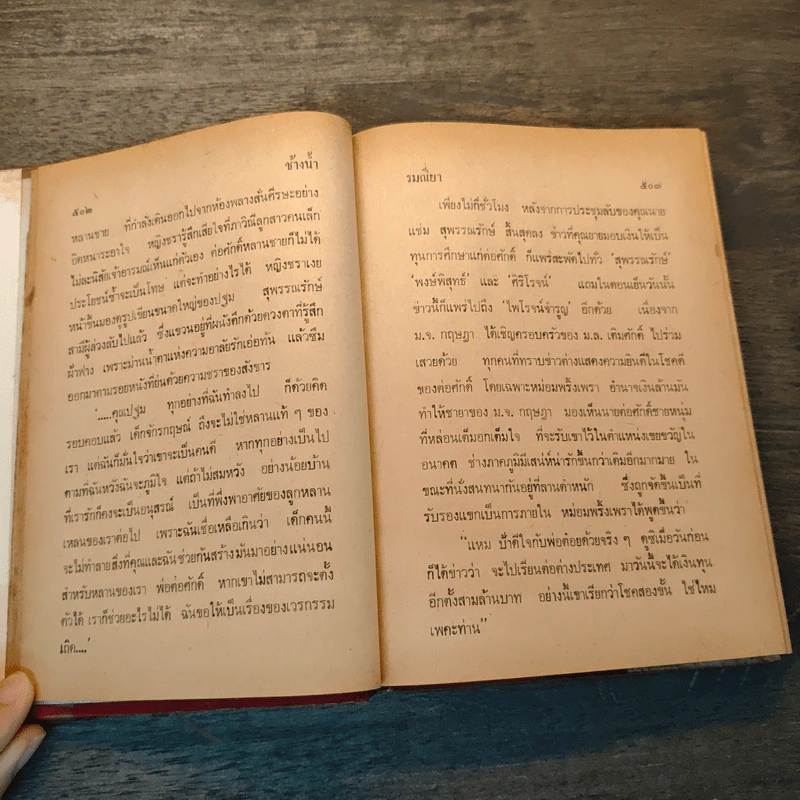 ช้างน้ำ
๕๐๒
หลานชาย ที่กำลังเดินออกไปจากห้องพลางสั่นศีรษะอย่าง
อิดหนาระอาใจ หญิงชรารู้สึกเสียใจที่ภาวิณีลูกสาวคนเล็ก
ไม่ละนิสัยเจ้าอารมณ์เห็นแก่ตัวเอง ต่อศักดิ์หลานชายก็ไม่ได้
ประโยชน์ซ้ำจะเป็นโทษ แต่จะทำอย่างไรได้ หญิงชราเงย
หน้าขึ้นมองดูรูปเขียนขนาดใหญ่ของปฐม สุพรรณรักษ์
สามีผู้ล่วงลับไปแล้ว ซึ่งแขวนอยู่ที่ผนังตึกด้วยดวงตาที่รู้สึก
ฝ้าฟาง เพราะม่านน้ำตาแห่งความอาลัยรักเอ่อทัน แล้วซึม
ออกมาตามรอยหนังที่ย่นด้วยความชราของสังขาร
'.....คุณปฐม ทุกอย่างที่ฉันทำลงไป ก็ด้วยคิด
รอบคอบแล้ว เด็กจักรกฤษณ์ ถึงจะไม่ใช่หลานแท้ ๆ ของ
เรา แต่ฉันก็มั่นใจว่าเขาจะเป็นคนดี หากทุกอย่างเป็นไป
ตามที่ฉันหวังฉันจะภูมิใจ แต่ถ้าไม่สมหวัง อย่างน้อยบ้าน
ที่เรารักก็คงจะเป็นอนุสรณ์ เป็นที่พึ่งพาอาศัยของลูกหลาน
เหลนของเราต่อไป เพราะฉันเชื่อเหลือเกินว่า เด็กคนนี้
จะไม่ทำลายสิ่งที่คุณและฉันช่วยกันสร้างมันมาอย่างแน่นอน
สำหรับหลานของเรา พ่อต่อศักดิ์ หากเขาไม่สามารถจะตั้ง
ตัวได้ เราก็ช่วยอะไรไม่ได้ ฉันขอให้เป็นเรื่องของเวรกรรม
เถิด....'
รมณียา
๕๐๓
เพียงไม่กี่ชั่วโมง หลังจากการประชุมลับของคุณนาย
แช่ม สุพรรณรักษ์ สิ้นสุดลง ข่าวที่คุณยายมอบเงินให้เป็น
ทุนการศึกษาแก่ต่อศักดิ์ ก็แพร่สะพัดไปทั่ว 'สุพรรณรักษ์'
'พงษ์พิสุทธิ์' และ 'ศิริโรจน์' แถมในตอนเย็นวันนั้น
ข่าวนี้ก็แพร่ไปถึง 'ไพโรจน์จำรูญ' อีกด้วย เนื่องจาก
ม.จ. กฤษฎา ได้เชิญครอบครัวของ ม.ล. เติมศักดิ์ ไปร่วม
เสวยด้วย ทุกคนที่ทราบข่าวต่างแสดงความยินดีในโชคดี
ของต่อศักดิ์ โดยเฉพาะหม่อมพริ้งเพรา อำนาจเงินล้านมัน
ทำให้ชายาของ ม.จ. กฤษฎา มองเห็นนายต่อศักดิ์ชายหนุ่ม
ที่หล่อนเต็มอกเต็มใจ ที่จะรับเขาไว้ในตำแหน่งเขยขวัญใน
อนาคต ช่างภาคภูมิมีเสน่ห์น่ารักขึ้นกว่าเดิมอีกมากมาย ใน
ขณะที่นั่งสนทนากันอยู่ที่ลานตำหนัก ซึ่งถูกจัดขึ้นเป็นที่
รับรองแขกเป็นการภายใน หม่อมพริ้งเพราได้พูดขึ้นว่า
"แหม ป้าดีใจกับพ่อต๋อยด้วยจริง ๆ ดูซิเมื่อวันก่อน
ก็ได้ข่าวว่า จะไปเรียนต่อต่างประเทศ มาวันนี้จะได้เงินทุน
อีกตั้งสามล้านบาท อย่างนี้เขาเรียกว่าโชคสองชั้น ใช่ไหม
เพคะท่าน"